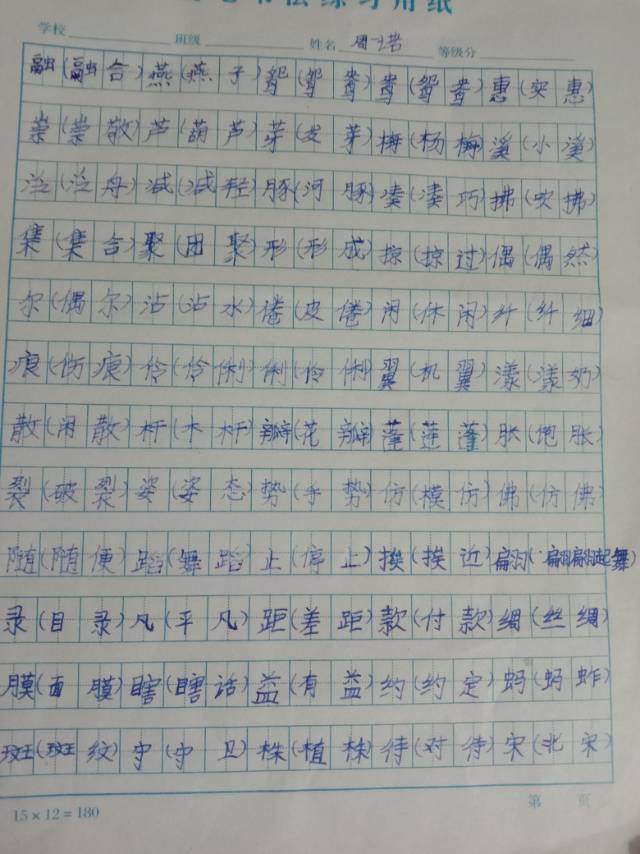 练习用纸
学校 班级 姓名 等级分
融(融合)燕(燕子)鸳(鸳鸯)鸯(鸳鸯)惠(实惠)
崇(崇敬)芦(葫芦)芽(发芽)梅(杨梅)溪(小溪)
泛(泛舟)减(减轻)豚(河豚)凑(凑巧)拂(吹拂)
集(集合)聚(团聚)形(形成)掠(掠过)偶(偶然)
尔(偶尔)沾(沾水)倦(皮倦)闲(休闲)纤(纤细)
痕(伤痕)伶(伶俐)俐(伶俐)翼(机翼)漾(漾奶)
散(闲散)杆(木杆)瓣(花瓣)蓬(莲蓬)胀(饱胀)
裂(破裂)姿(姿态)势(手势)仿(模仿)佛(仿佛)
随(随便)蹈(舞蹈)止(停止)挨(挨近)翩(翩翩起舞)
录(目录)凡(平凡)距(差距)款(付款)绸(丝绸)
膜(面膜)瞎(瞎话)益(有益)约(约定)蚂(蚂蚱)
斑(斑纹)守(守卫)株(植株)待(对待)宋(北宋)
15×12=180 第 页